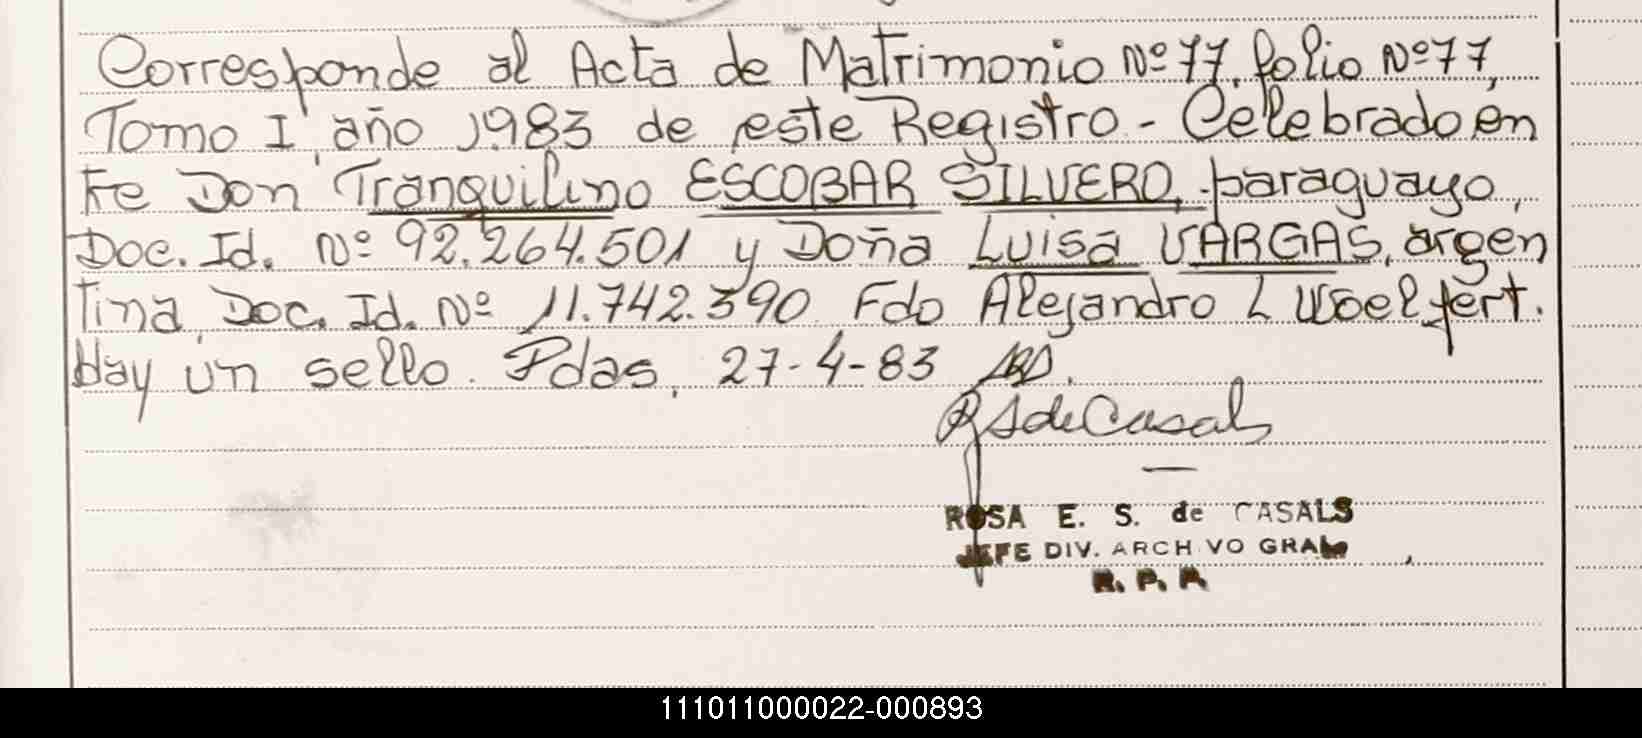 Corresponde al Acta de Matrimonio Nº 77, folio Nº 77,
Tomo I, año 1983 de este Registro - Celebrado en
tre Don Tranquilino ESCOBAR SILVERO, paraguayo,
Doc. Id. Nº 92.264.501 y Doña Luisa VARGAS, argen
tina, Doc. Id. Nº 11.742.390. Fdo Alejandro L Woelfert.
Hay un sello. Pdas, 27-4-83
RSdeCasals
ROSA E. S. de CASALS
JEFE DIV. ARCHIVO GRAL
R. P. P.
111011000022-000893